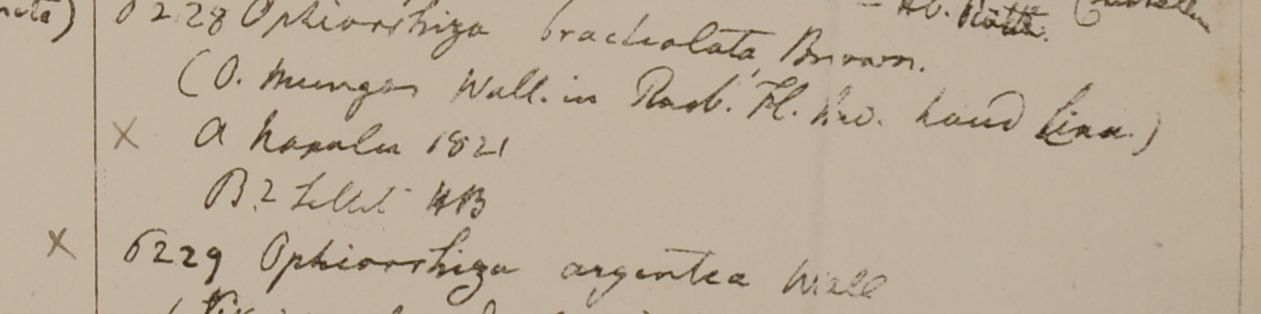 nota)
6228 Ophiorrhiza bracteolata, Brown.
(O. mungos Wall. in Roxb. Fl. Ind. haud Linn.)
× A Napalia 1821
B? Sillet HB
× 6229 Ophiorrhiza argentea Wall